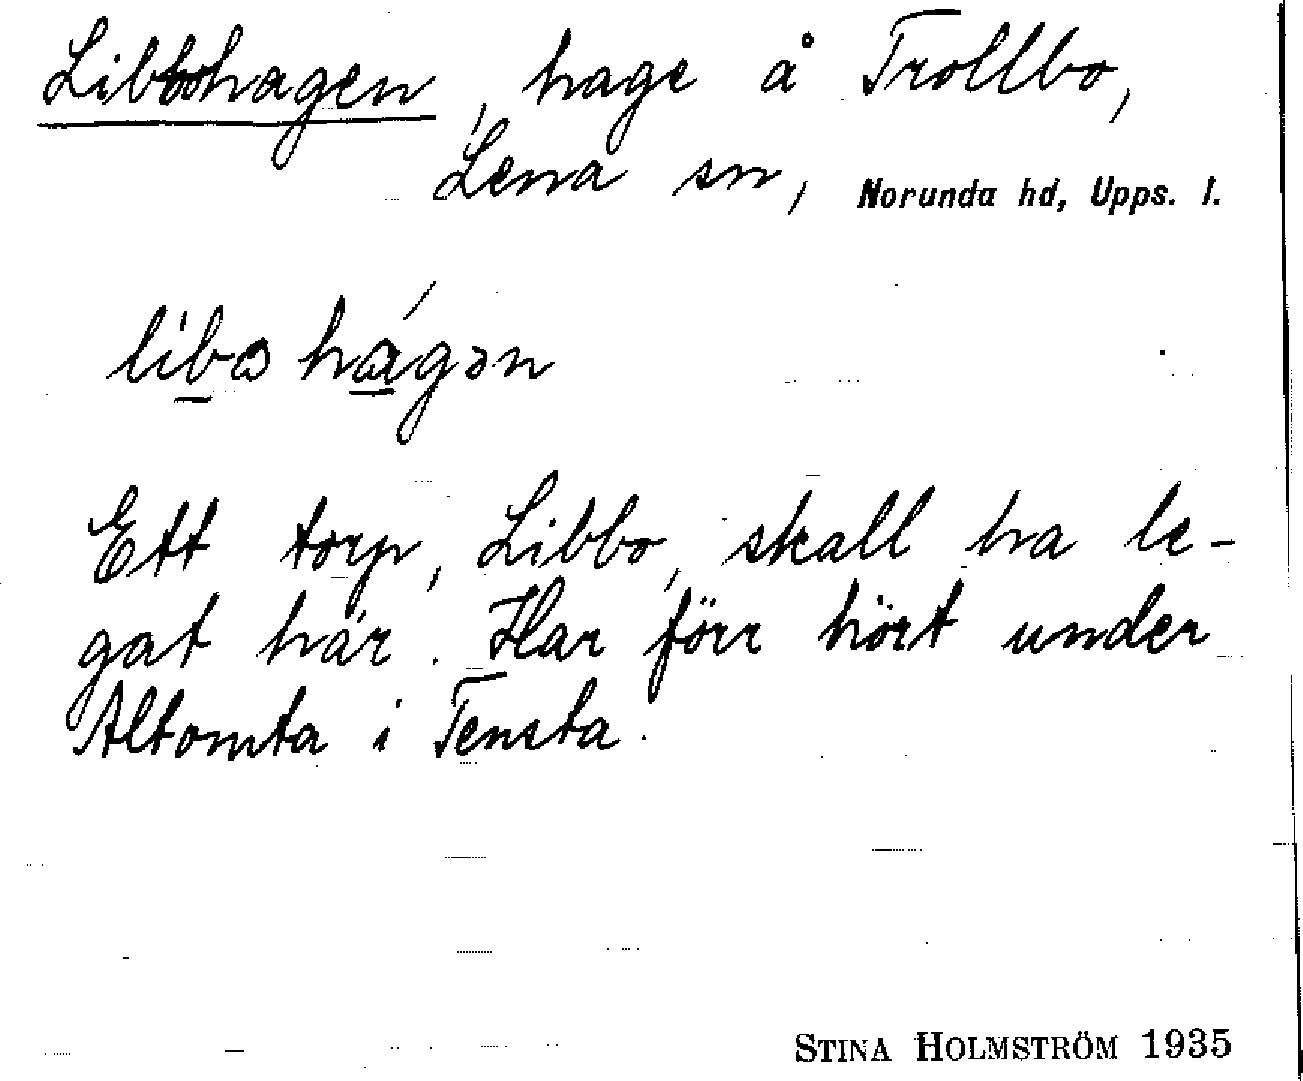 Libbohagen, hage å Trollbo,
Lena sn, Norunda hd, Upps. l.
libo hágən
Ett torp, Libbo, skall ha le-
gat här. Har förr hört under
Altomta i Tensta.
STINA HOLMSTRÖM 1935